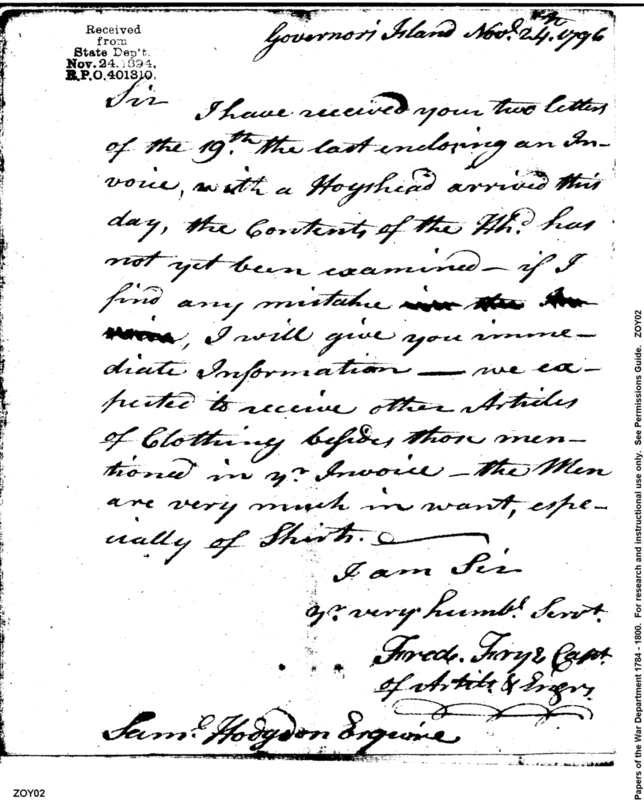 Received
from
State Dep't.
Nov. 24. 1894.
R.P.O. 401310.
Governors Island Novr. 24.th 1796
Sir I have received your two letters
of the 19.th the last enclosing an In-
voice, with a Hogshead arrived this
day, the Contents of the Hhd. has
not yet been examined — if I
find any mistake in the In-
voice, I will give you imme-
diate Information — we ex-
pected to receive other Articles
of Clothing besides those men-
tioned in yr. Invoice — the Men
are very much in want, espe-
cially of Shirts.
I am Sir
yr. very humbl. Servt.
Fredc. Frye Capt.
of Artils & Engrs.
Saml. Hodgdon Esquire
ZOY02
Papers of the War Department 1784 - 1800. For research and instructional use only. See Permissions Guide. ZOY02